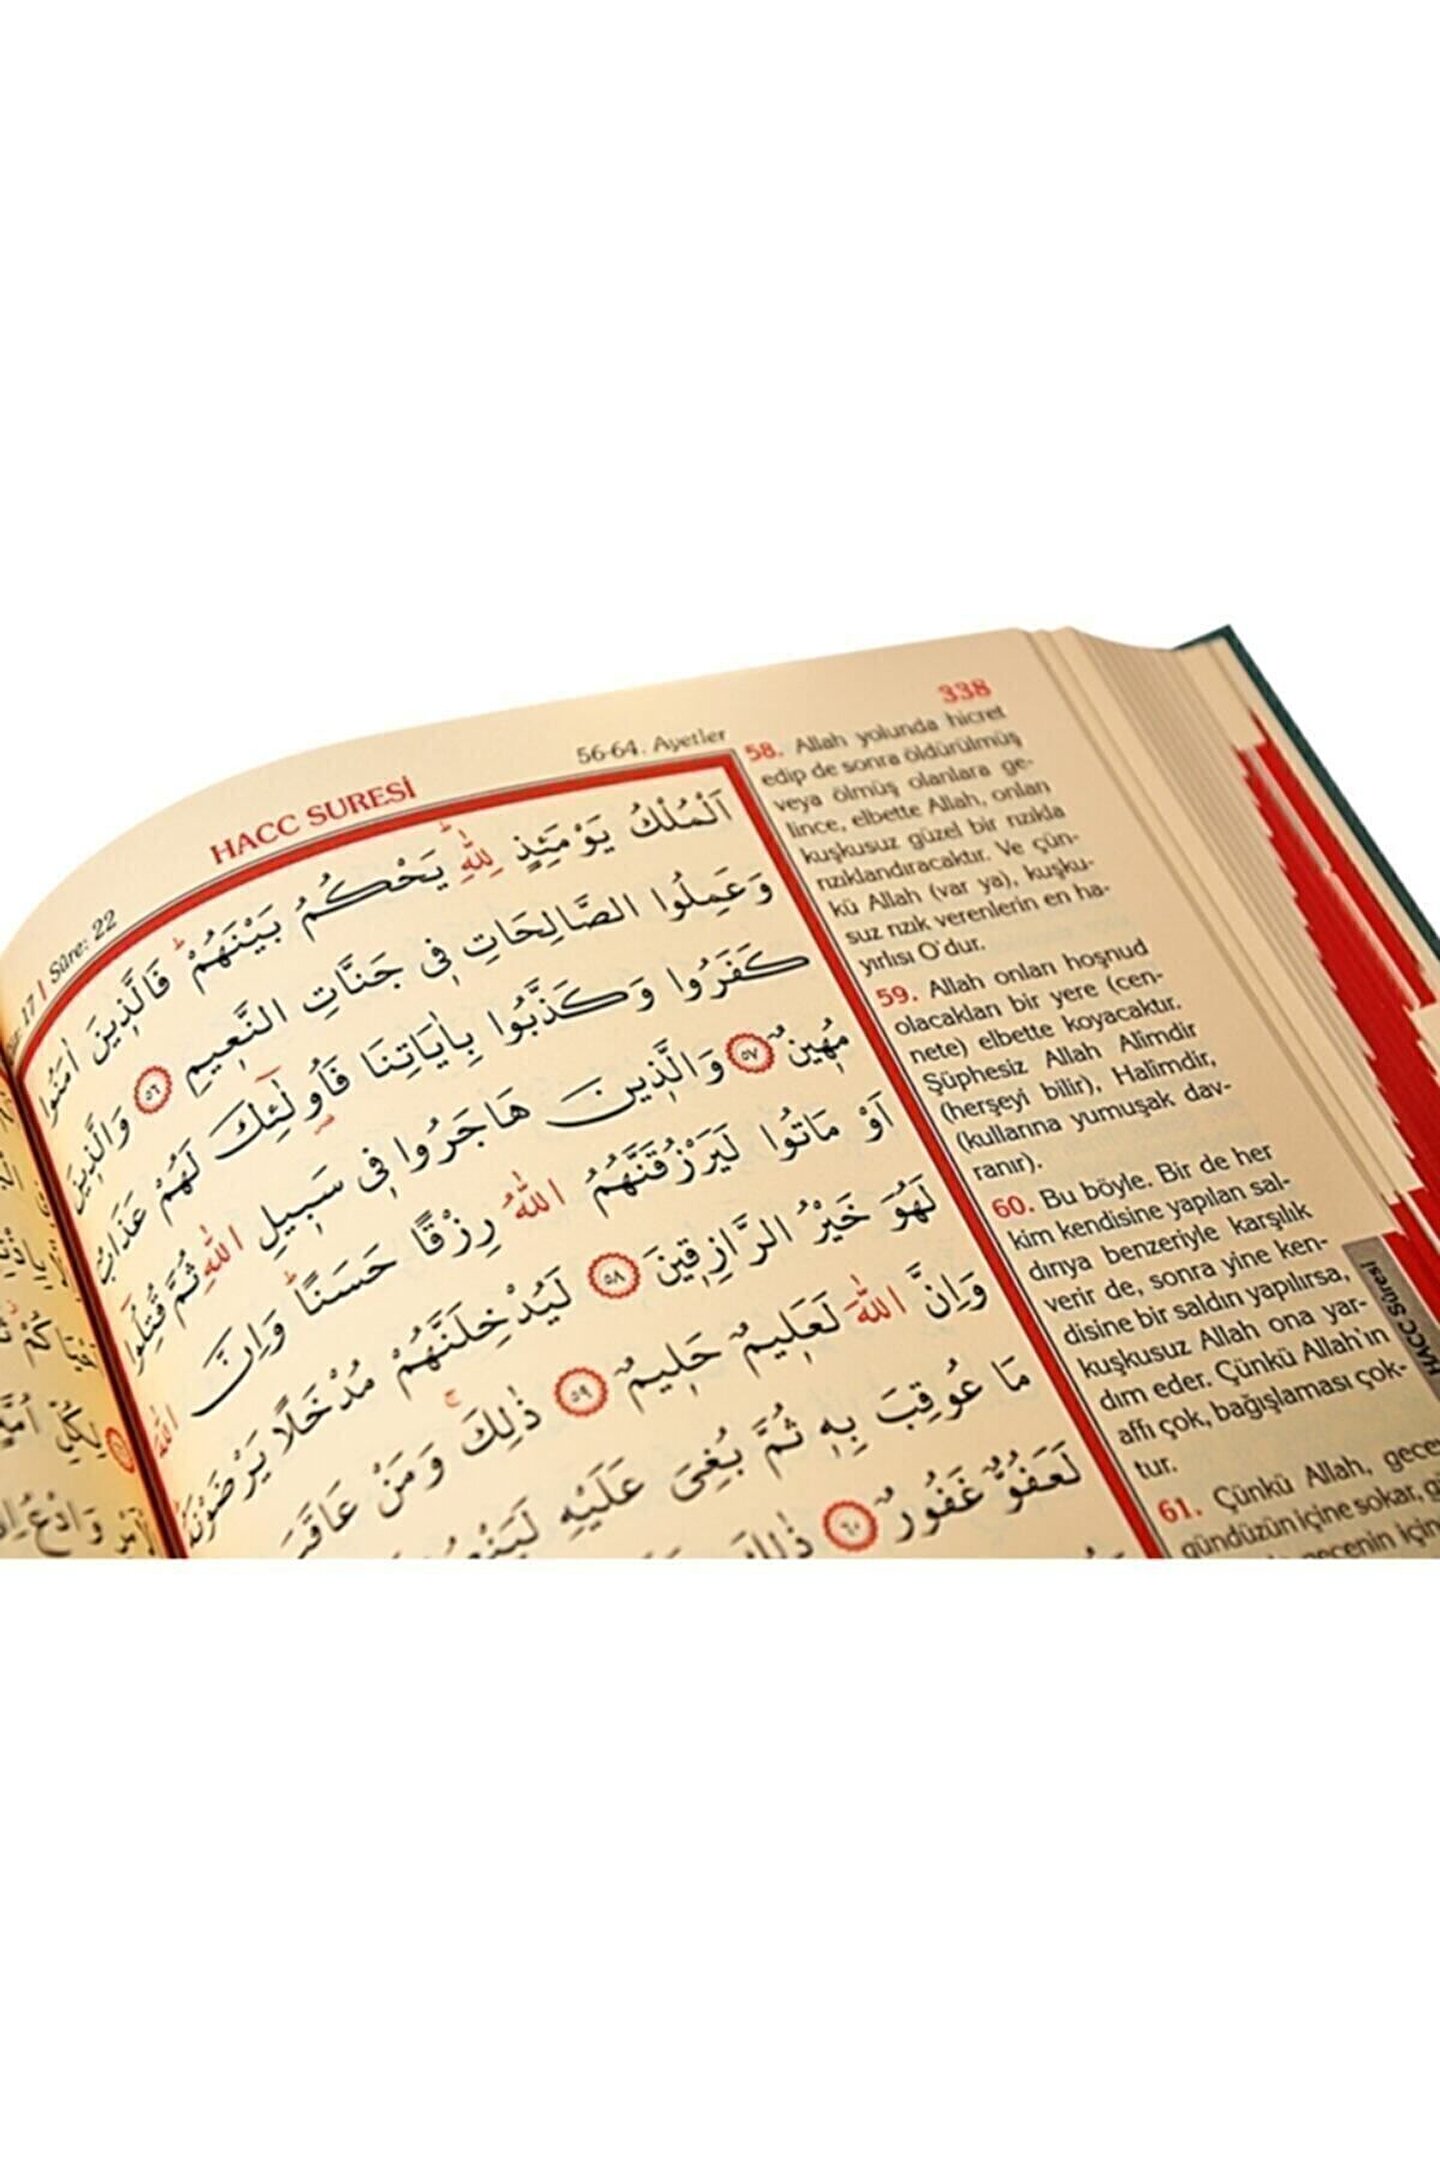 338
56-64. Ayetler
HACC SURESİ
17 | Sûre: 22
اَلْمُلْكُ يَوْمَئِذٍ لِلّٰهِ يَحْكُمُ بَيْنَهُمْ فَالَّذٖينَ اٰمَنُوا
وَعَمِلُوا الصَّالِحَاتِ فٖي جَنَّاتِ النَّعٖيمِ ٥٦ وَالَّذٖينَ
كَفَرُوا وَكَذَّبُوا بِاٰيَاتِنَا فَاُو۬لٰٓئِكَ لَهُمْ عَذَابٌ
مُهٖينٌ ٥٧ وَالَّذٖينَ هَاجَرُوا فٖي سَبٖيلِ اللّٰهِ ثُمَّ قُتِلُٓوا
اَوْ مَاتُوا لَيَرْزُقَنَّهُمُ اللّٰهُ رِزْقًا حَسَنًا وَاِنَّ اللّٰهَ
لَهُوَ خَيْرُ الرَّازِقٖينَ ٥٨ لَيُدْخِلَنَّهُمْ مُدْخَلًا يَرْضَوْنَهُ
وَاِنَّ اللّٰهَ لَعَلٖيمٌ حَلٖيمٌ ٥٩ ذٰلِكَ وَمَنْ عَاقَبَ
مَا عُوقِبَ بِهٖ ثُمَّ بُغِيَ عَلَيْهِ
لَعَفُوٌّ غَفُورٌ ٦٠ ذٰلِكَ
58. Allah yolunda hicret
edip de sonra öldürülmüş
veya ölmüş olanlara ge-
lince, elbette Allah, onları
kuşkusuz güzel bir rızıkla
rızıklandıracaktır. Ve çün-
kü Allah (var ya), kuşku-
suz rızık verenlerin en ha-
yırlısı O'dur.
59. Allah onları hoşnud
olacakları bir yere (cen-
nete) elbette koyacaktır.
Şüphesiz Allah Alîmdir
(herşeyi bilir), Halîmdir,
(kullarına yumuşak dav-
ranır).
60. Bu böyle. Bir de her
kim kendisine yapılan sal-
dırıya benzeriyle karşılık
verir de, sonra yine ken-
disine bir saldırı yapılırsa,
kuşkusuz Allah ona yar-
dım eder. Çünkü Allah'ın
affı çok, bağışlaması çok-
tur.
61. Çünkü Allah, gece
gündüzün içine sokar,
gecenin için
HACC Sûresi